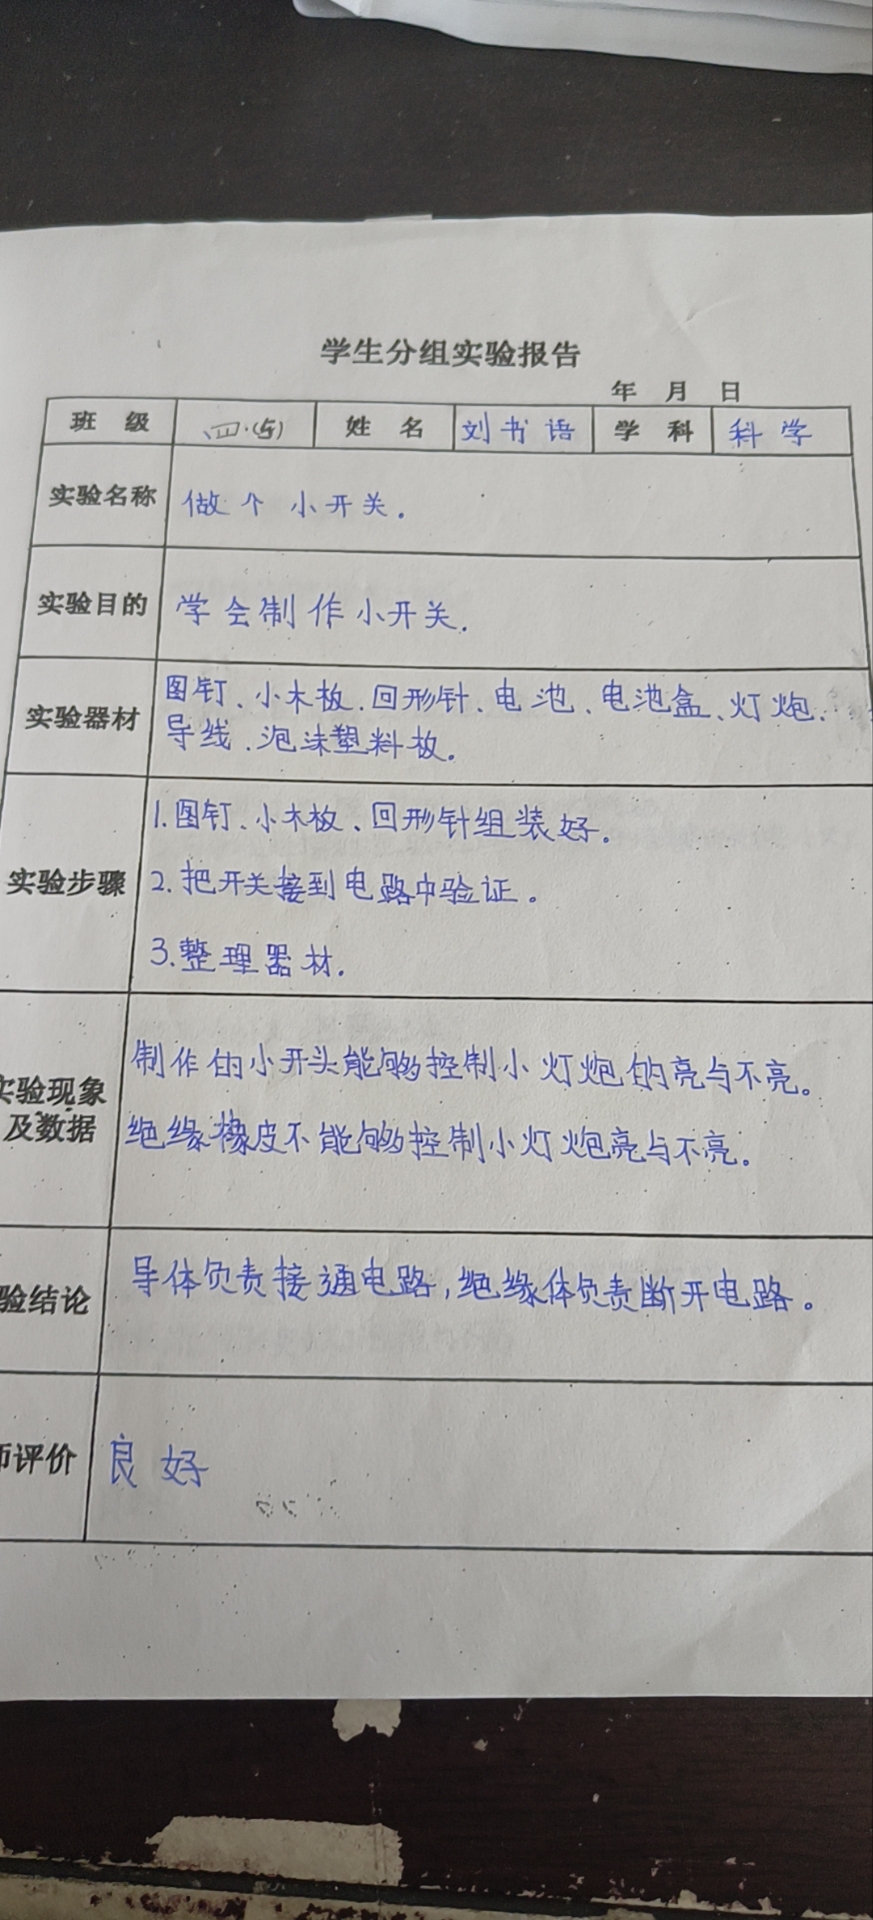 学生分组实验报告
年 月 日
班 级 四.(5) 姓 名 刘书语 学 科 科学
实验名称 做个小开关.
实验目的 学会制作小开关.
实验器材 图钉、小木板、回形针、电池、电池盒、灯炮、
导线、泡沫塑料板。
实验步骤 1.图钉、小木板、回形针组装好.
2.把开关接到电路中验证。
3.整理器材.
实验现象 制作的小开头能够控制小灯炮的亮与不亮。
及数据 绝缘橡皮不能够控制小灯炮亮与不亮。
验结论 导体负责接通电路,绝缘体负责断开电路。
师评价 良好